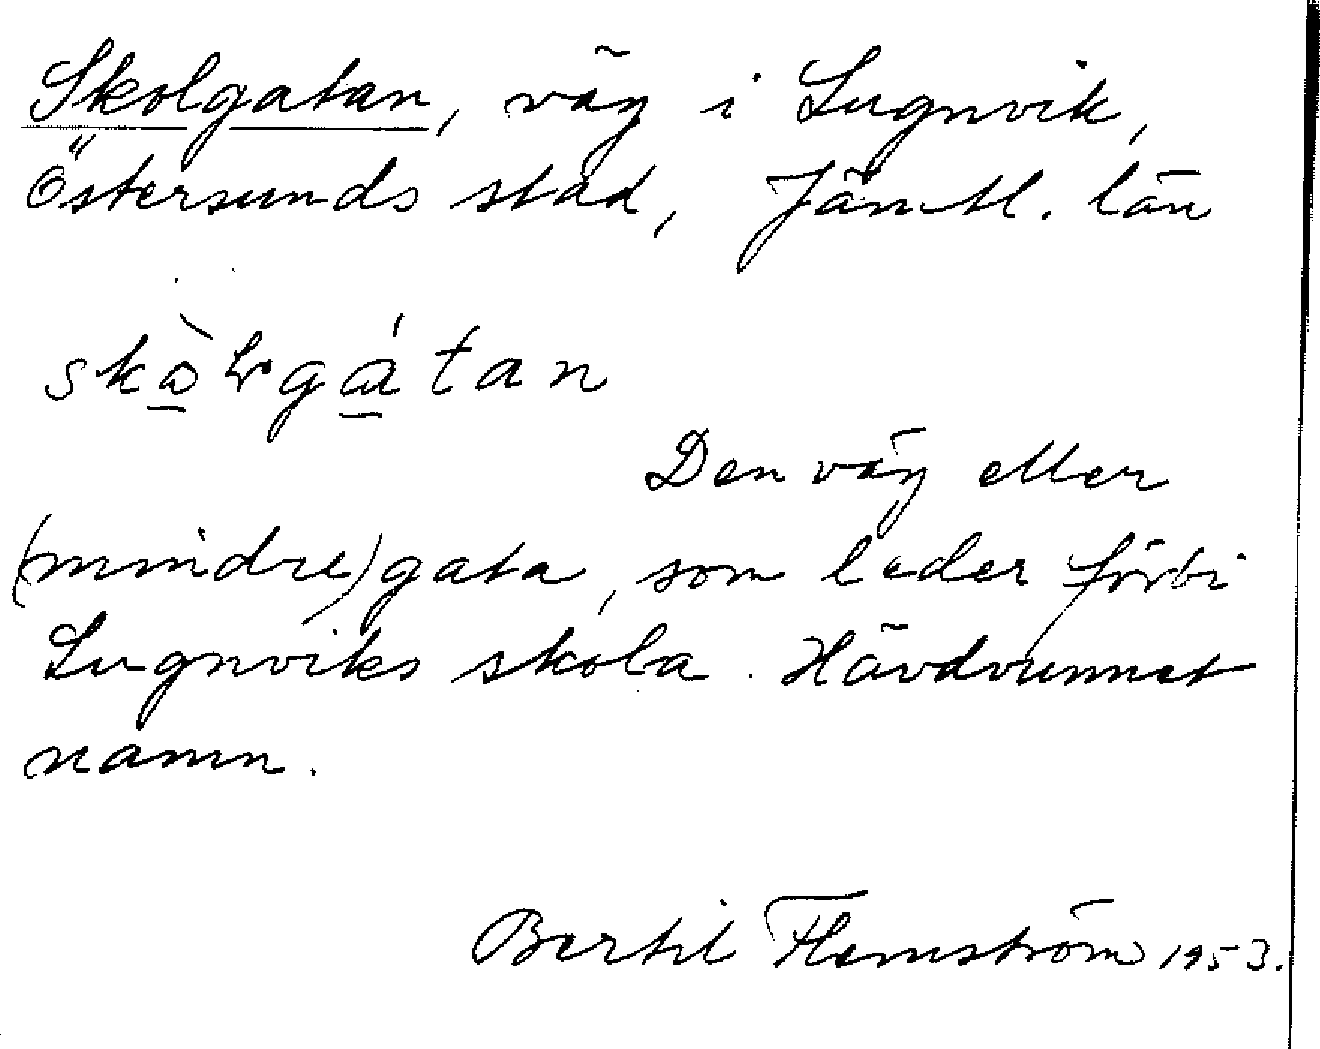 Skolgatan, väg i Lugnvik,
Östersunds stad, Jämtl. län
skòlgátan
Den väg eller
(mindre) gata, som leder förbi
Lugnviks skola. Hävdvunnet
namn.
Bertil Flemström 1953.